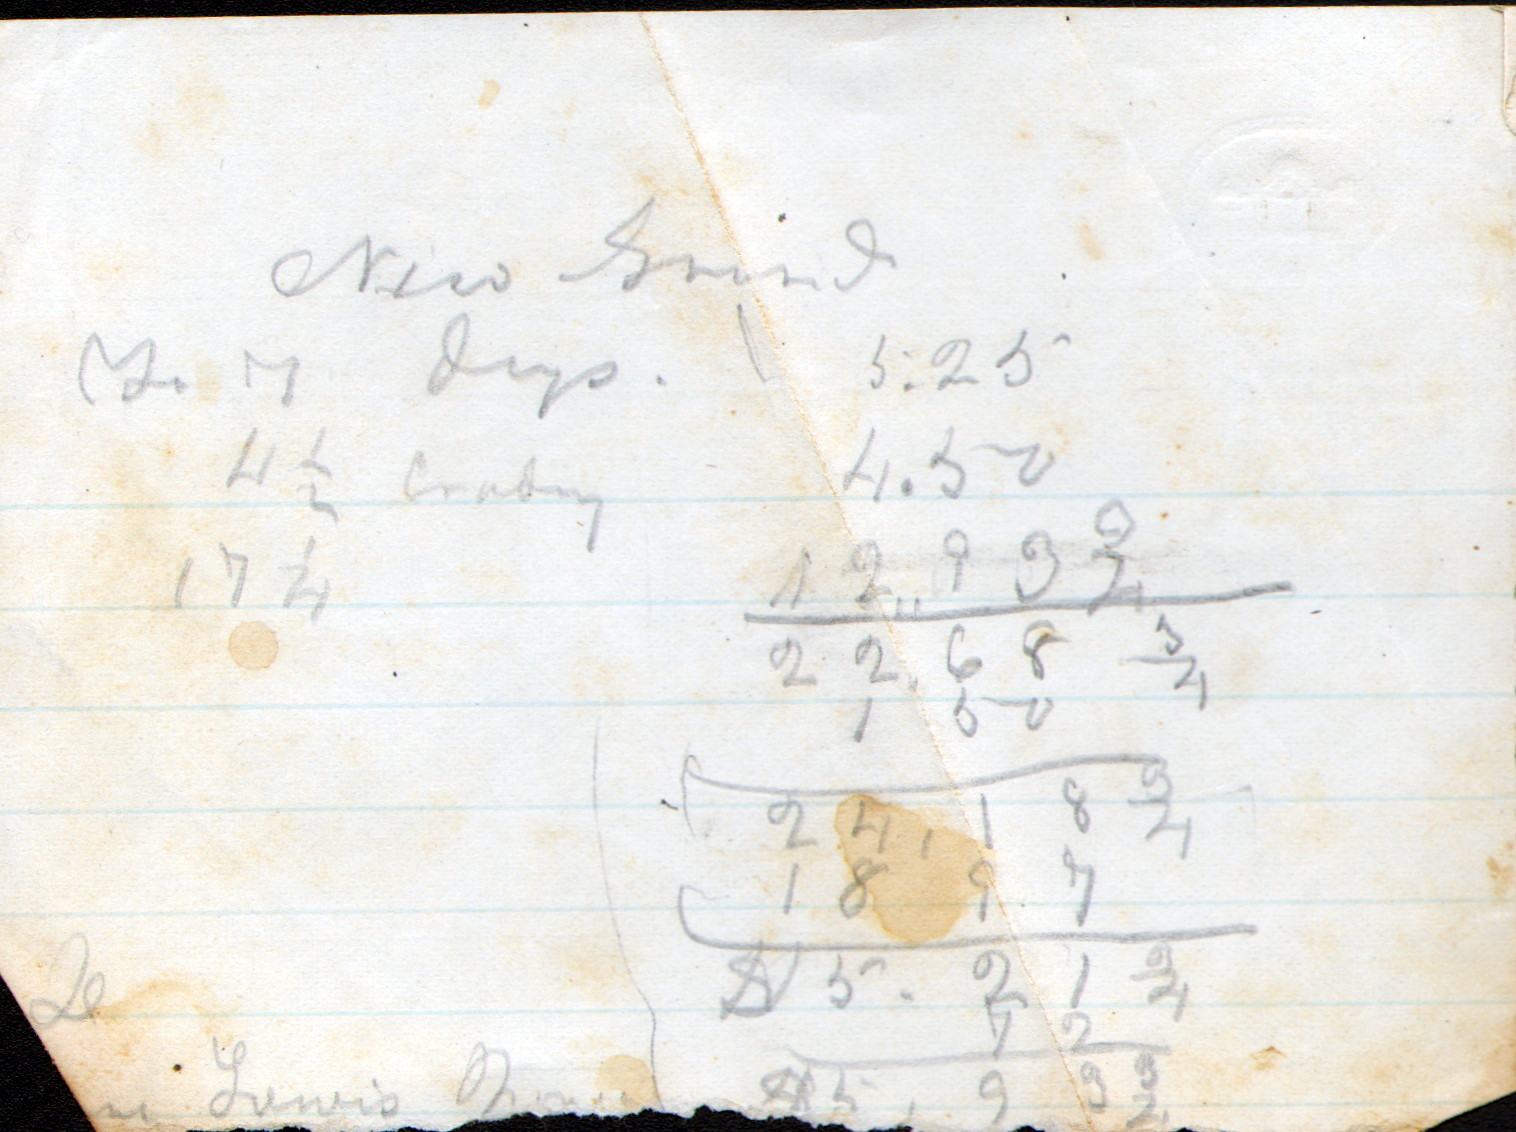 New Ground
To 7 days. 5.25
4 1/2 Cradng 4.50
17 1/4 12.93 3/4
22.68 3/4
1 50
24.18 3/4
18 97
$ 5.21 3/4
72
$ 5.93 3/4
Lewis